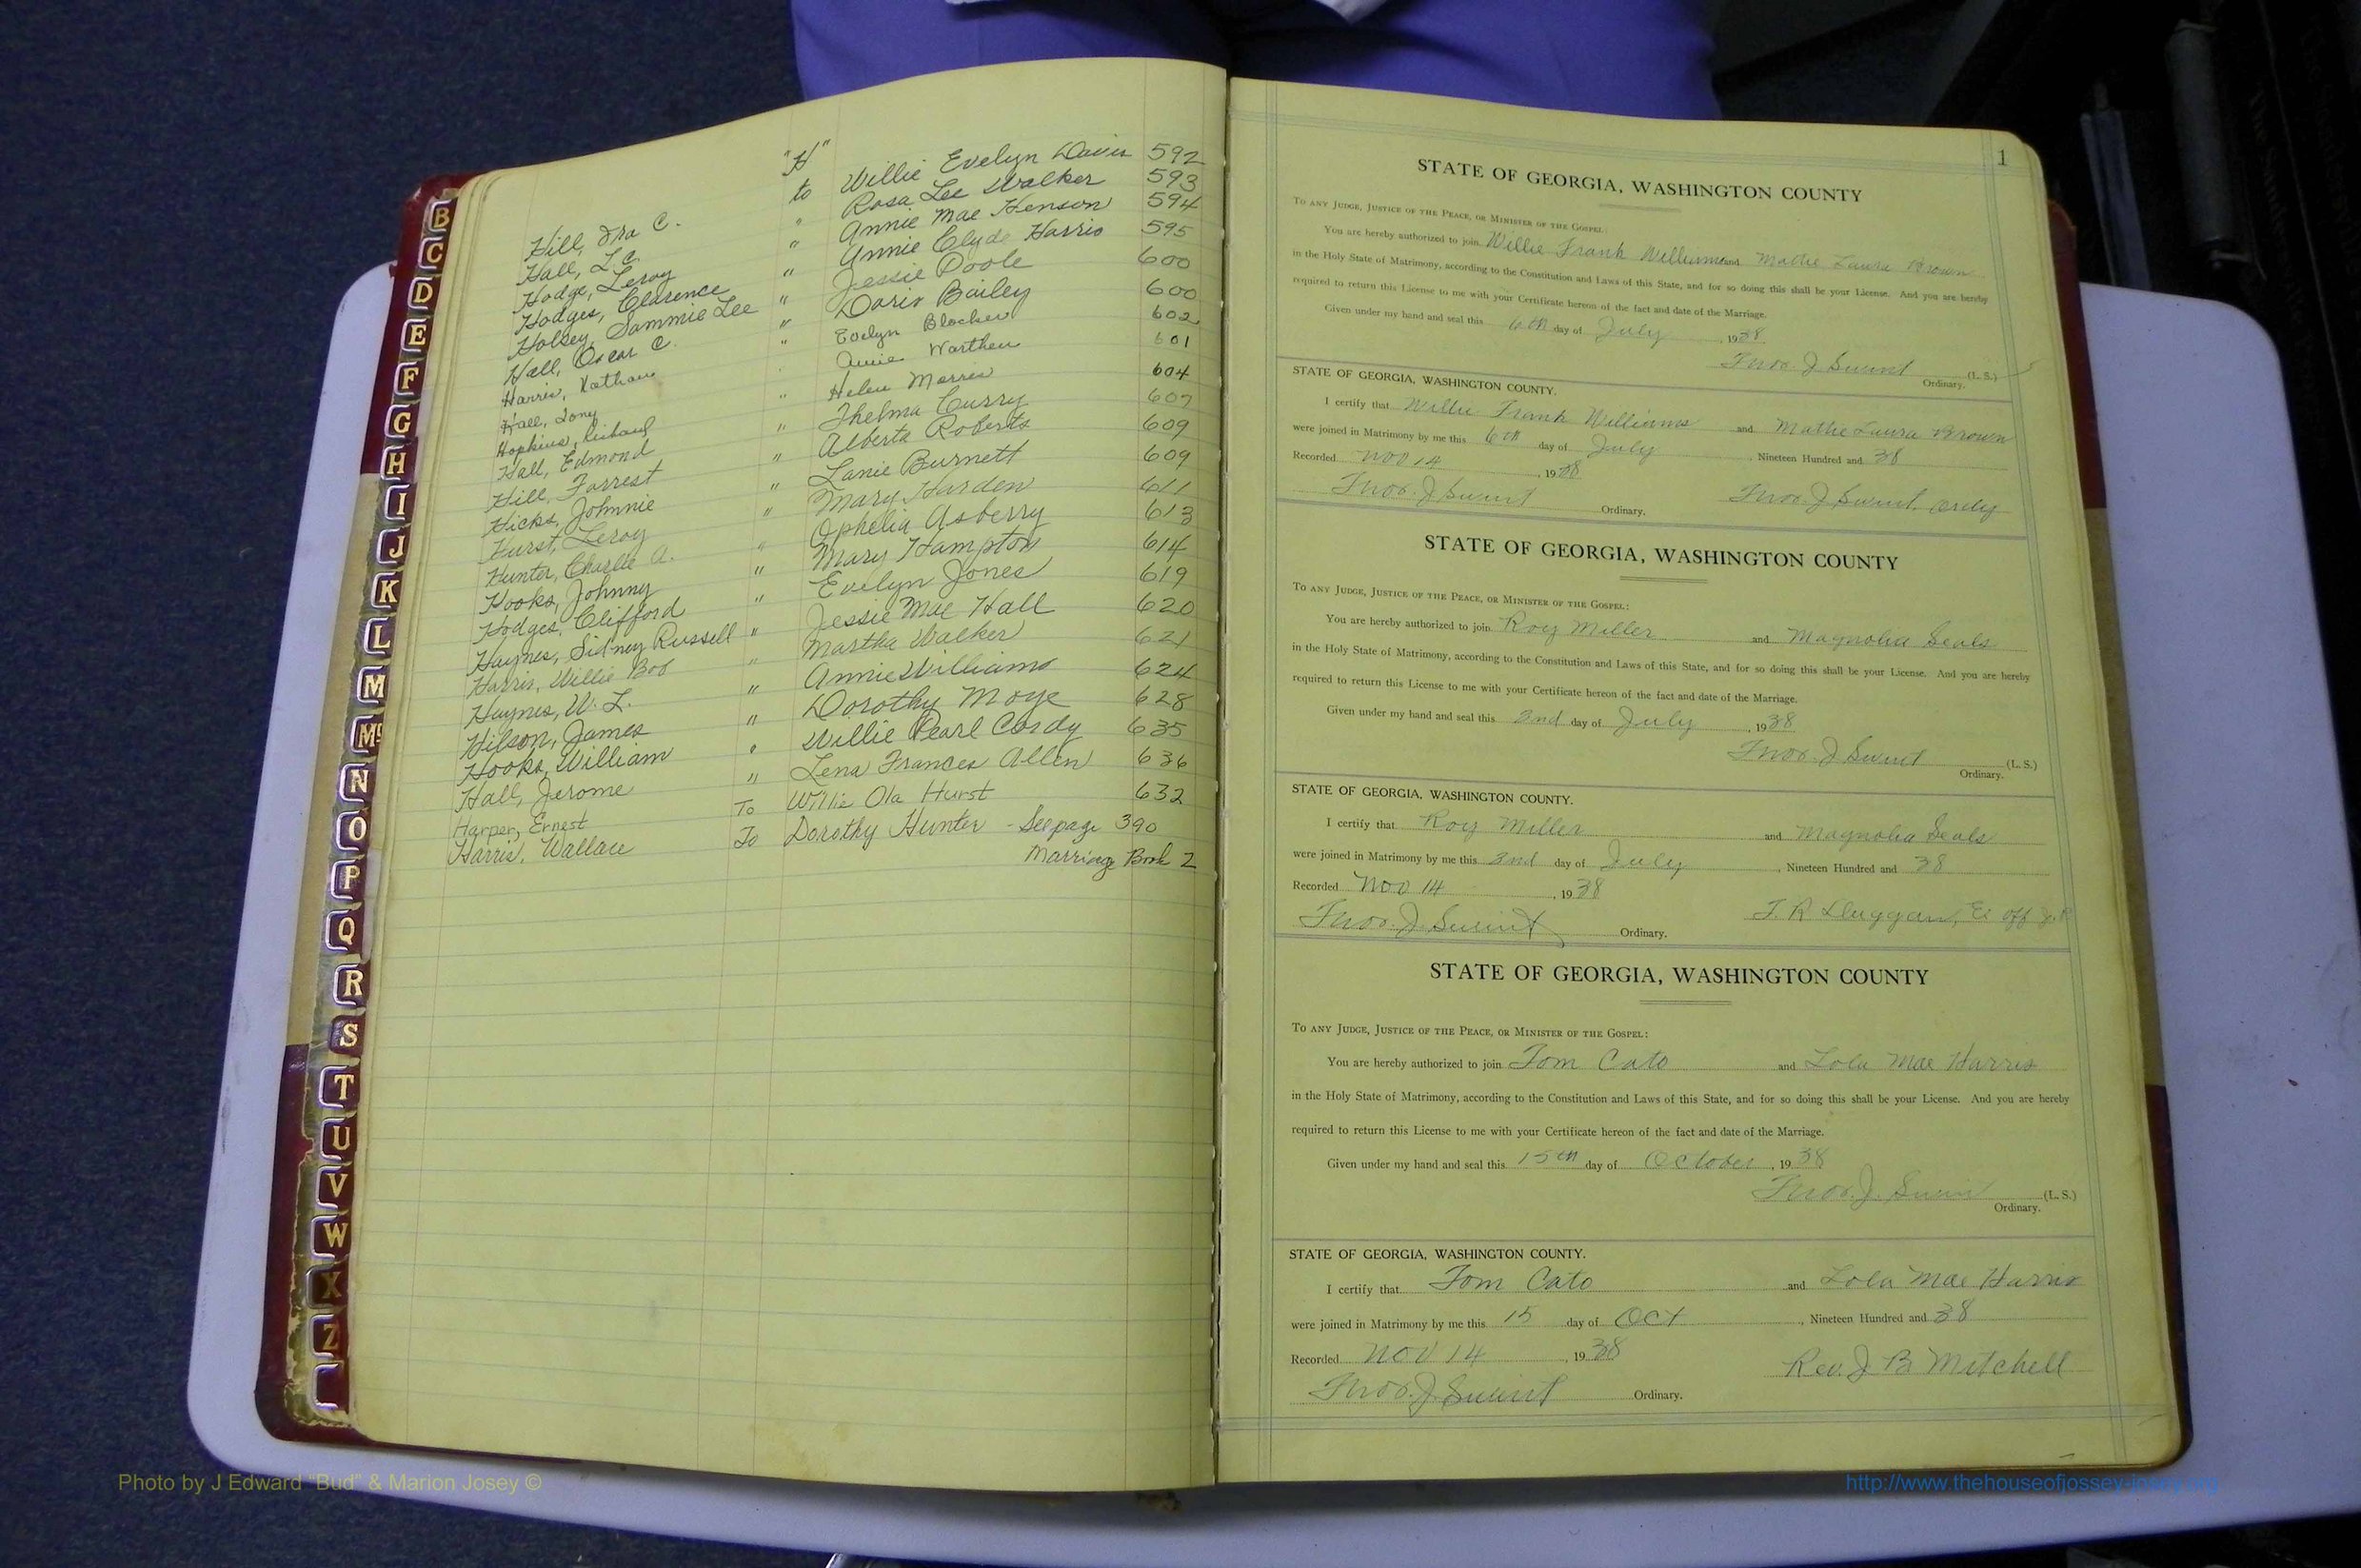 "H"
Hill, Ira C. to Willie Evelyn Davis 592
Hall, L.C. " Rosa Lee Walker 593
Hodge, Leroy " Annie Mae Henson 594
Hodges, Clarence " Annie Clyde Harris 595
Holsey, Sammie Lee " Jessie Poole 600
Hall, Oscar C. " Doris Bailey 600
Harris, Nathan " Evelyn Blocker 602
Hall, Tony Annie Warthen 601
Hopkins, Richard " Helen Morris 604
Hall, Edmond " Thelma Curry 607
Hill, Forrest " Alberta Roberts 609
Hicks, Johnnie " Lanie Burnett 609
Hurst, Leroy " Mary Harden 611
Hunter, Charlie A. " Ophelia Asberry 613
Hooks, Johnny " Mary Hampton 614
Hodges, Clifford " Evelyn Jones 619
Haynes, Sidney Russell " Jessie Mae Hall 620
Harris, Willie Bob " Martha Walker 621
Haynes, W. L. " Annie Williams 624
Hilson, James " Dorothy Moye 628
Hooks, William " Willie Pearl Cordy 635
Hall, Jerome " Lena Frances Allen 636
Harper, Ernest To Willie Ola Hurst 632
Harris, Wallace To Dorothy Hunter - See page 390
Marriage Book Z
B
C
D
E
F
G
H
I
J
K
L
M
Mc
N
O
P
Q
R
S
T
U
V
W
X
Z
1
STATE OF GEORGIA, WASHINGTON COUNTY
To any Judge, Justice of the Peace, or Minister of the Gospel:
You are hereby authorized to join Willie Frank Williams and Mattie Laura Brown
in the Holy State of Matrimony, according to the Constitution and Laws of this State, and for so doing this shall be your License. And you are hereby
required to return this License to me with your Certificate hereon of the fact and date of the Marriage.
Given under my hand and seal this 6th day of July, 1938
Thos. J. Swint (L. S.)
Ordinary.
STATE OF GEORGIA, WASHINGTON COUNTY.
I certify that Willie Frank Williams and Mattie Laura Brown
were joined in Matrimony by me this 6th day of July, Nineteen Hundred and 38
Recorded Nov 14, 1938
Thos. J. Swint Ordinary. Thos. J. Swint, Ordy
STATE OF GEORGIA, WASHINGTON COUNTY
To any Judge, Justice of the Peace, or Minister of the Gospel:
You are hereby authorized to join Roy Miller and Magnolia Seals
in the Holy State of Matrimony, according to the Constitution and Laws of this State, and for so doing this shall be your License. And you are hereby
required to return this License to me with your Certificate hereon of the fact and date of the Marriage.
Given under my hand and seal this 2nd day of July, 1938
Thos. J. Swint (L. S.)
Ordinary.
STATE OF GEORGIA, WASHINGTON COUNTY.
I certify that Roy Miller and Magnolia Seals
were joined in Matrimony by me this 2nd day of July, Nineteen Hundred and 38
Recorded Nov 14, 1938
Thos. J. Swint Ordinary. T. R. Duggan, Ex off J.P.
STATE OF GEORGIA, WASHINGTON COUNTY
To any Judge, Justice of the Peace, or Minister of the Gospel:
You are hereby authorized to join Tom Cato and Lola Mae Harris
in the Holy State of Matrimony, according to the Constitution and Laws of this State, and for so doing this shall be your License. And you are hereby
required to return this License to me with your Certificate hereon of the fact and date of the Marriage.
Given under my hand and seal this 15th day of October, 1938
Thos. J. Swint (L. S.)
Ordinary.
STATE OF GEORGIA, WASHINGTON COUNTY.
I certify that Tom Cato and Lola Mae Harris
were joined in Matrimony by me this 15 day of Oct, Nineteen Hundred and 38
Recorded Nov 14, 1938 Rev. J B Mitchell
Thos. J. Swint Ordinary.
Photo by J Edward "Bud" & Marion Josey ©
http://www.thehouseofjossey-josey.org